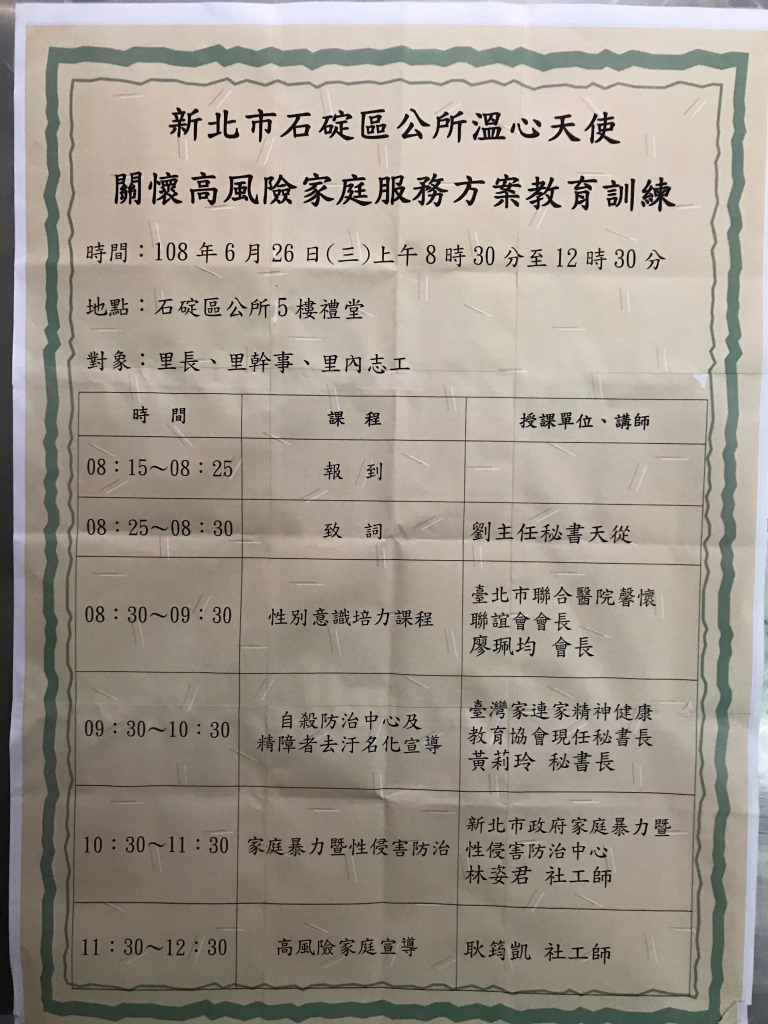 新北市石碇區公所溫心天使
關懷高風險家庭服務方案教育訓練
時間：108 年 6 月 26 日(三)上午 8 時 30 分至 12 時 30 分
地點：石碇區公所 5 樓禮堂
對象：里長、里幹事、里內志工
時 間 課 程 授課單位、講師
08：15～08：25 報 到
08：25～08：30 致 詞 劉主任秘書天從
08：30～09：30 性別意識培力課程
臺北市聯合醫院馨懷
聯誼會會長
廖珮均 會長
09：30～10：30
自殺防治中心及
精障者去汙名化宣導
臺灣家連家精神健康
教育協會現任秘書長
黃莉玲 秘書長
10：30～11：30 家庭暴力暨性侵害防治
新北市政府家庭暴力暨
性侵害防治中心
林姿君 社工師
11：30～12：30 高風險家庭宣導 耿筠凱 社工師